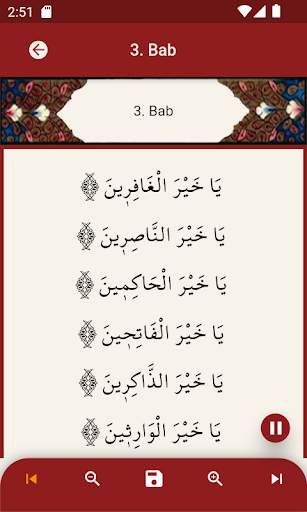 2:51
3. Bab
3. Bab
يَا خَيْرَ الْغَافِرِينَ
يَا خَيْرَ النَّاصِرِينَ
يَا خَيْرَ الْحَاكِمِينَ
يَا خَيْرَ الْفَاتِحِينَ
يَا خَيْرَ الذَّاكِرِينَ
يَا خَيْرَ الْوَارِثِينَ